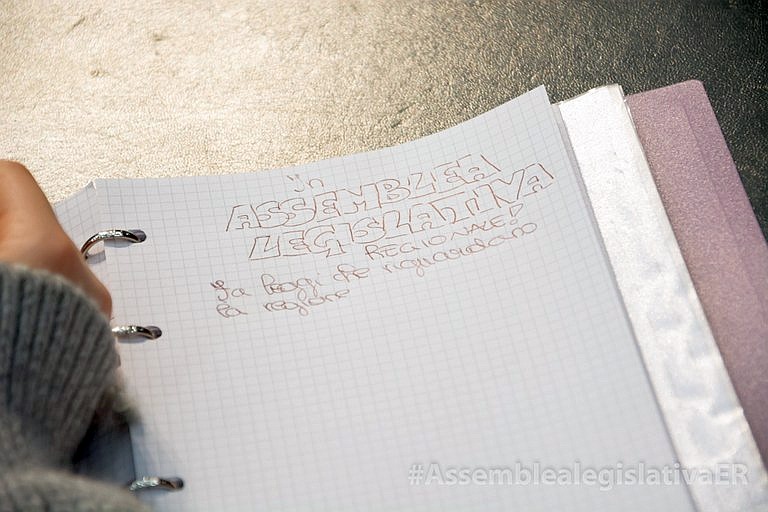 in
ASSEMBLEA
LEGISLATIVA
REGIONALE?
fa leggi che riguardano
la regione
#AssemblealegislativaER